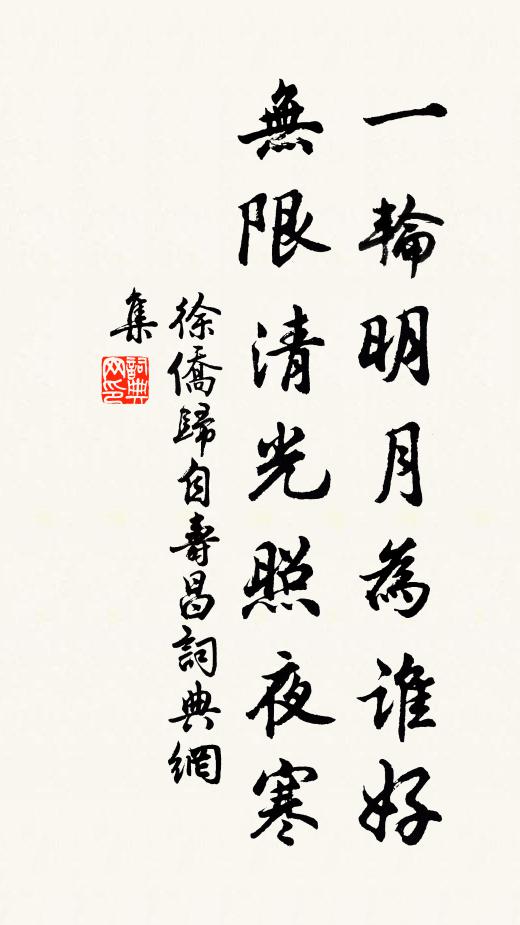 一輪明月為誰好
無限清光照夜寒
徐僑歸自壽昌詞典網
集
詞典
网印